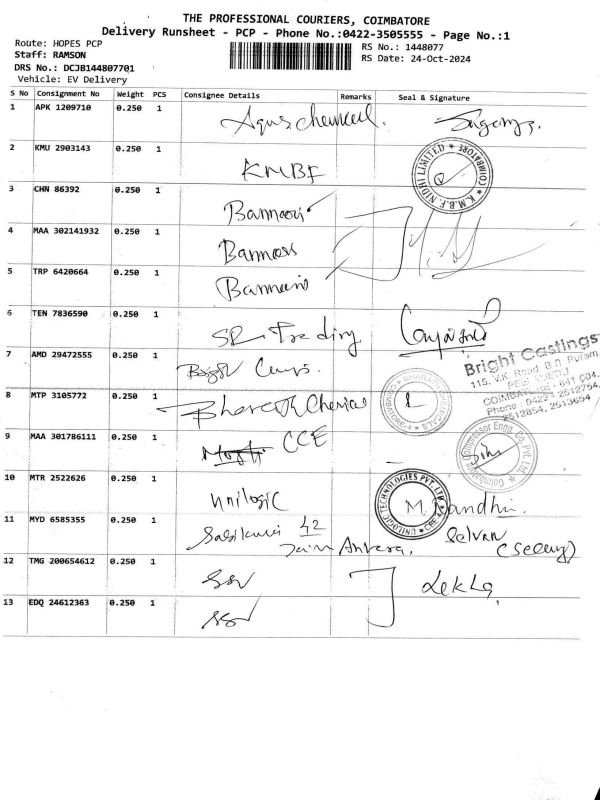 THE PROFESSIONAL COURIERS, COIMBATORE
Delivery Runsheet - PCP - Phone No.:0422-3505555 - Page No.:1
Route: HOPES PCP
RS No.: 1448077
Staff: RAMSON
RS Date: 24-Oct-2024
DRS No.: DCJB144807701
Vehicle: EV Delivery
S No Consignment No Weight PCS Consignee Details Remarks Seal & Signature
1 APK 1209710 0.250 1
2 KMU 2903143 0.250 1 KMBF
K.M.B.F. NIDHI LIMITED * COIMBATORE *
3 CHN 86392 0.250 1 Bannari
4 MAA 302141932 0.250 1 Bannari
5 TRP 6420664 0.250 1 Bannari
6 TEN 7836590 0.250 1 SR Trading
7 AMD 29472555 0.250 1
Bright Castings
115, V.K. Road, B.R. Puram
COIMBATORE - 641 004.
Phone: 0422-2512754,
2512854, 2513654
8 MTP 3105772 0.250 1 Bharath Chemical
9 MAA 301786111 0.250 1 CCE
Compressor Engg. Co. Pvt. Ltd. Coimbatore
10 MTR 2522626 0.250 1 Unilogic
UNILOGIC TECHNOLOGIES PVT. LTD. CBE
M. Nandhi
11 MYD 6585355 0.250 1 42 Selvan
Jain
12 TMG 200654612 0.250 1 SSV Lekha
13 EDQ 24612363 0.250 1 SSV
1